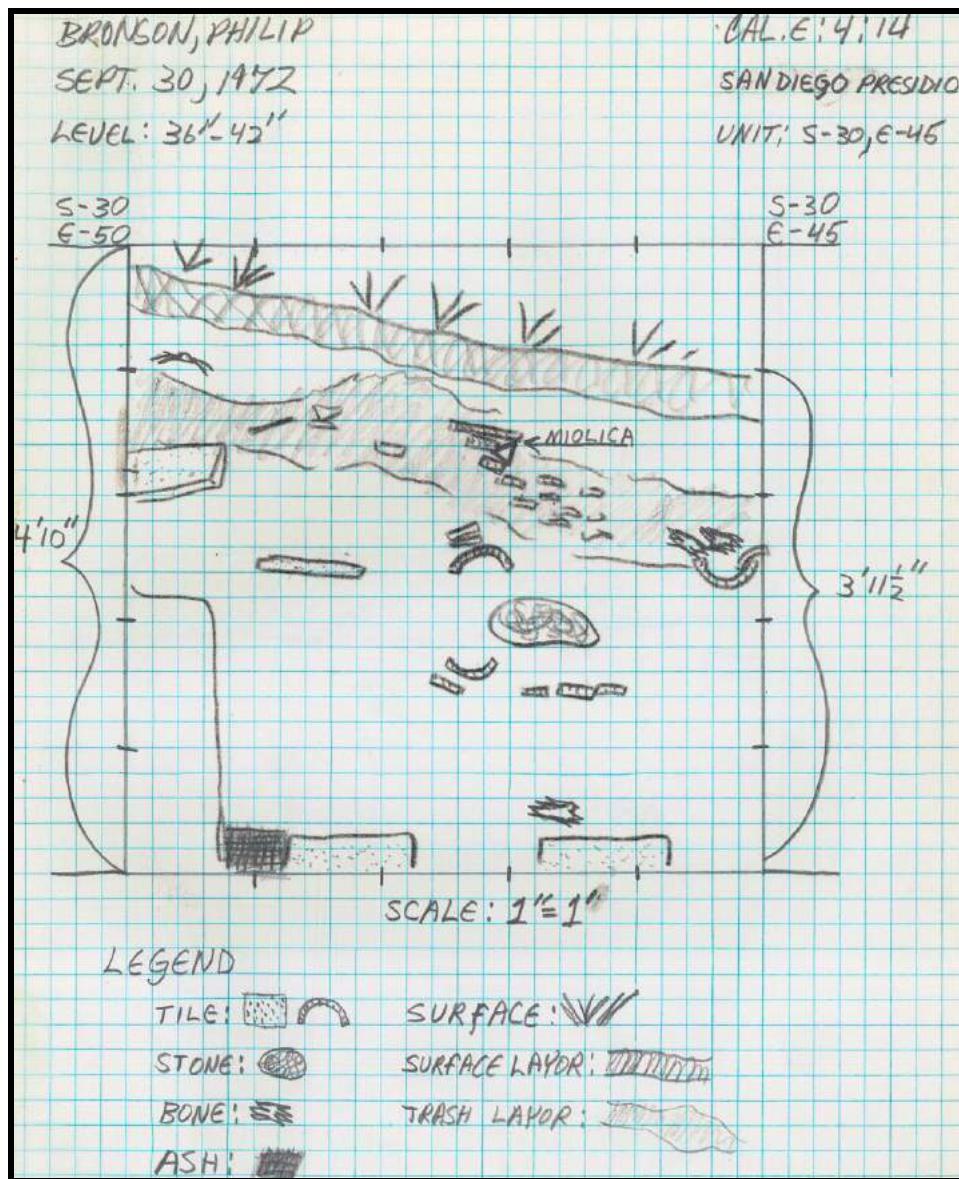 BRONSON, PHILIP
SEPT. 30, 1972
LEVEL: 36"-42"
CAL.E:4:14
SAN DIEGO PRESIDIO
UNIT: S-30, E-45
S-30
E-50
S-30
E-45
MIOLICA
4'10"
3'11½"
SCALE: 1"=1"
LEGEND
TILE:
STONE:
BONE:
ASH:
SURFACE:
SURFACE LAYOR:
TRASH LAYOR: